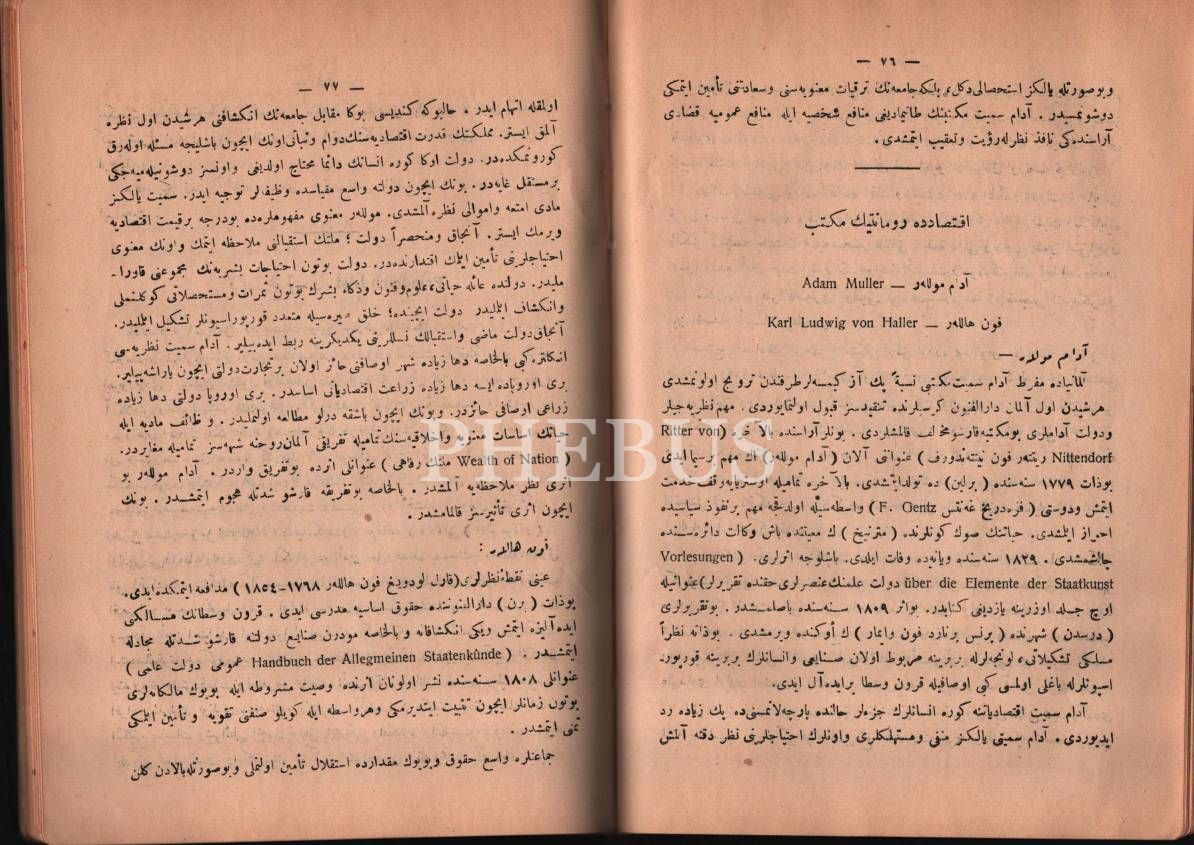 — ٧٦ —
وبوصورتله يالكز استحصالی دكل، بلكه جامعه‌نك ترقیات معنویه‌سنی وسعادتنی تأمین ایتمكی
دوشونمسیدر. آدام سمیت مكتبنك طانیمادیغی منافع شخصیه ایله منافع عمومیه قضادی
آراسنده‌كی نافذ نظرله رؤیت وتعقیب ایتمشدی.
اقتصادده رومانتیك مكتب
ادام موللەر — Adam Muller
فون هاللەر — Karl Ludwig von Haller
آدام موللر —
آلمانیاده مفرط آدام سمیت مكتبی نسبةً پك آز كیمسه‌لر طرفندن ترویج اولونمشدی
هرشیدن اول آلمان دارالفنون كرسیلرنده تنقیدسز قبول اولنمایوردی. مهم نظریه‌جیلر
ودولت آداملری بومكتبه قارشو مخالف قالمشلردی. بونلر آراسنده بالآخره (Ritter von
Nittendorf ریتتەر فون نیتتەندورف) عنوانی آلان (آدام موللەر) اك مهم برسیما ایدی
بوذات ١٧٧٩ سنه‌سنده (برلین) ده تولد ایتمشدی. بالآخره تمامیله اوستریایه وقف خدمت
ایتمش ودوستی (فره‌دریغ غەنتس F. Gentz) واسطه‌سیله اولدقجه مهم برنفوذ سیاسیده
احراز ایلمشدی. حیاتنك صوك كونلرنده (مترنیخ) ك معیتنده باش وكالت دائره‌سنده
چالیشمشدی. ١٨٢٩ سنه‌سنده ویاناده وفات ایلدی. باشلوجه اثرلری. (Vorlesungen
über die Elemente der Staatkunst دولت علمنك عنصرلری حقنده تقریرلر) عنوانیله
اوچ جسلد اوزرینه یازدیغی كتابدر. بواثر ١٨٠٩ سنه‌سنده باصلمشدر. بوتقریرلری
(درسدن) شهرنده (پرنس برنارد فون وایمار) ك أوكنده ویرمشدی. بوذاته نظراً
مسلكی تشكیلاتی، لونجه‌لرله بربرینه مربوط اولان صنایعی وانسانلرك بربرینه قورپور-
اسیونلرله باغلی اولمسی كبی اوصافیله قرون وسطا برایده‌آل ایدی.
آدام سمیت اقتصادیاتنه كوره انسانلرك جزءلر حالنده پارچه‌لانمسنی‌ده پك زیاده رد
ایدیوردی. آدام سمیتی یالكز منفی ومستهلكلری واونلرك احتیاجلرینی نظر دقته آلمش
— ٧٧ —
اولمقله اتهام ایدر. حالبوكه كندیسی بوكا مقابل جامعه‌نك انكشافنی هرشیدن اول نظره
آلمق ایستر. مملكتك قدرت اقتصادیه‌سنك دوام وثباتی اونك ایچون باشلیجه مسئله اوله‌رق
كورونمكده‌در. دولت اوكا كوره انسانك دائما محتاج اولدیغی واونسز دوشونیله‌میه‌جكی
برمستقل غایه‌در. بونك ایچون دولته واسع مقیاسده وظیفه‌لر توجیه ایدر. سمیت یالكز
مادی امتعه واموالی نظره آلمشدی. موللەر معنوی مفهوملره‌ده بودرجه برقیمت اقتصادیه
ویرمك ایستر. آنجاق ومنحصراً دولت؛ ملتك استقبالنی ملاحظه ایتمك واونك معنوی
احتیاجلرینی تأمین ایلمك اقتدارنده‌در. دولت بوتون احتیاجات بشریه‌نك مجموعنی قاورا-
ملیدر. دولتده عائله حیاتی، علوم وفنون وذكاء بشرك بوتون ثمرات ومستحصلاتی كوكلنملی
وانكشاف ایتملیدر دولت ایچینده؛ خلق صیره‌سیله متعدد قورپوراسیونلر تشكیل ایتملیدر.
آنجاق دولت ماضی واستقبالك نسللرینی یكدیكرینه ربط ایده‌بیلیر. آدام سمیت نظریه‌سی
انكلتره كبی بالخاصه دها زیاده شهر اوصافنی حائز اولان برتجارت دولتی ایچون یاراشه‌بیلیر.
بری اوروپاده ایسه دها زیاده زراعت اقتصادیاتی اساسدر. بری اوروپا دولتی دها زیاده
زراعی اوصافی حائزدر. وبونك ایچون باشقه درلو مطالعه اولنملیدر. وظائف مادیه ایله
حیاتك اساسات معنویه واخلاقیه‌سنك تمامیله تفریقی آلمان روحنه شبهه‌سز تمامیله مغایردر.
(Wealth of Nation ملتك رفاهی) عنوانلی اثرده بوتفریق واردر. آدام موللەر بو
اثری نظر ملاحظه‌یه آلمشدر. بالخاصه بوتفریقه قارشو شدتله هجوم ایتمشدر. بونك
ایچون اثری تأثیرسز قالمامشدر.
فون هاللر:
عینی نقطۀ نظرلری (قارل لودویغ فون هاللەر ١٧٦٨-١٨٥٤) مدافعه ایتمكده ایدی.
بوذات (برن) دارالفنوننده حقوق اساسیه مدرسی ایدی. قرون وسطانك مسالكی
ایده‌آلیزه ایتمش ویكی انكشافاته و بالخاصه مودرن صنایع دولتنه قارشو شدتله مجادله
ایتمشدر. (Handbuch der Allegmeinen Staatenkûnde عمومی دولت علمی)
عنوانلی ١٨٠٨ سنه‌سنده نشر اولونان اثرنده وصیت مشروطه ایله بویوك مالكانه‌لری
بوتون زمانلر ایچون تثبیت ایتدیرمكی وهر واسطه ایله كویلو صنفنی تقویه و تأمین ایتملكی
تمنی ایتمشدر.
جماعتلره واسع حقوق وبویوك مقدارده استقلال تأمین اولنملی وبوصورتله بالادن كلن
PHEBUS